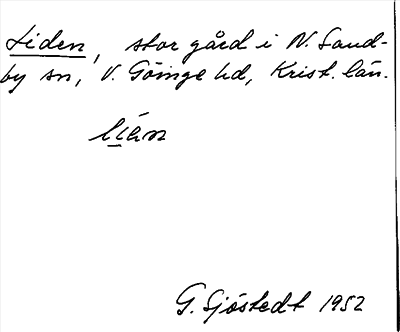 Liden, stor gård i N. Sand-
by sn, V. Göinge hd, Krist. län.
G. Sjöstedt 1952